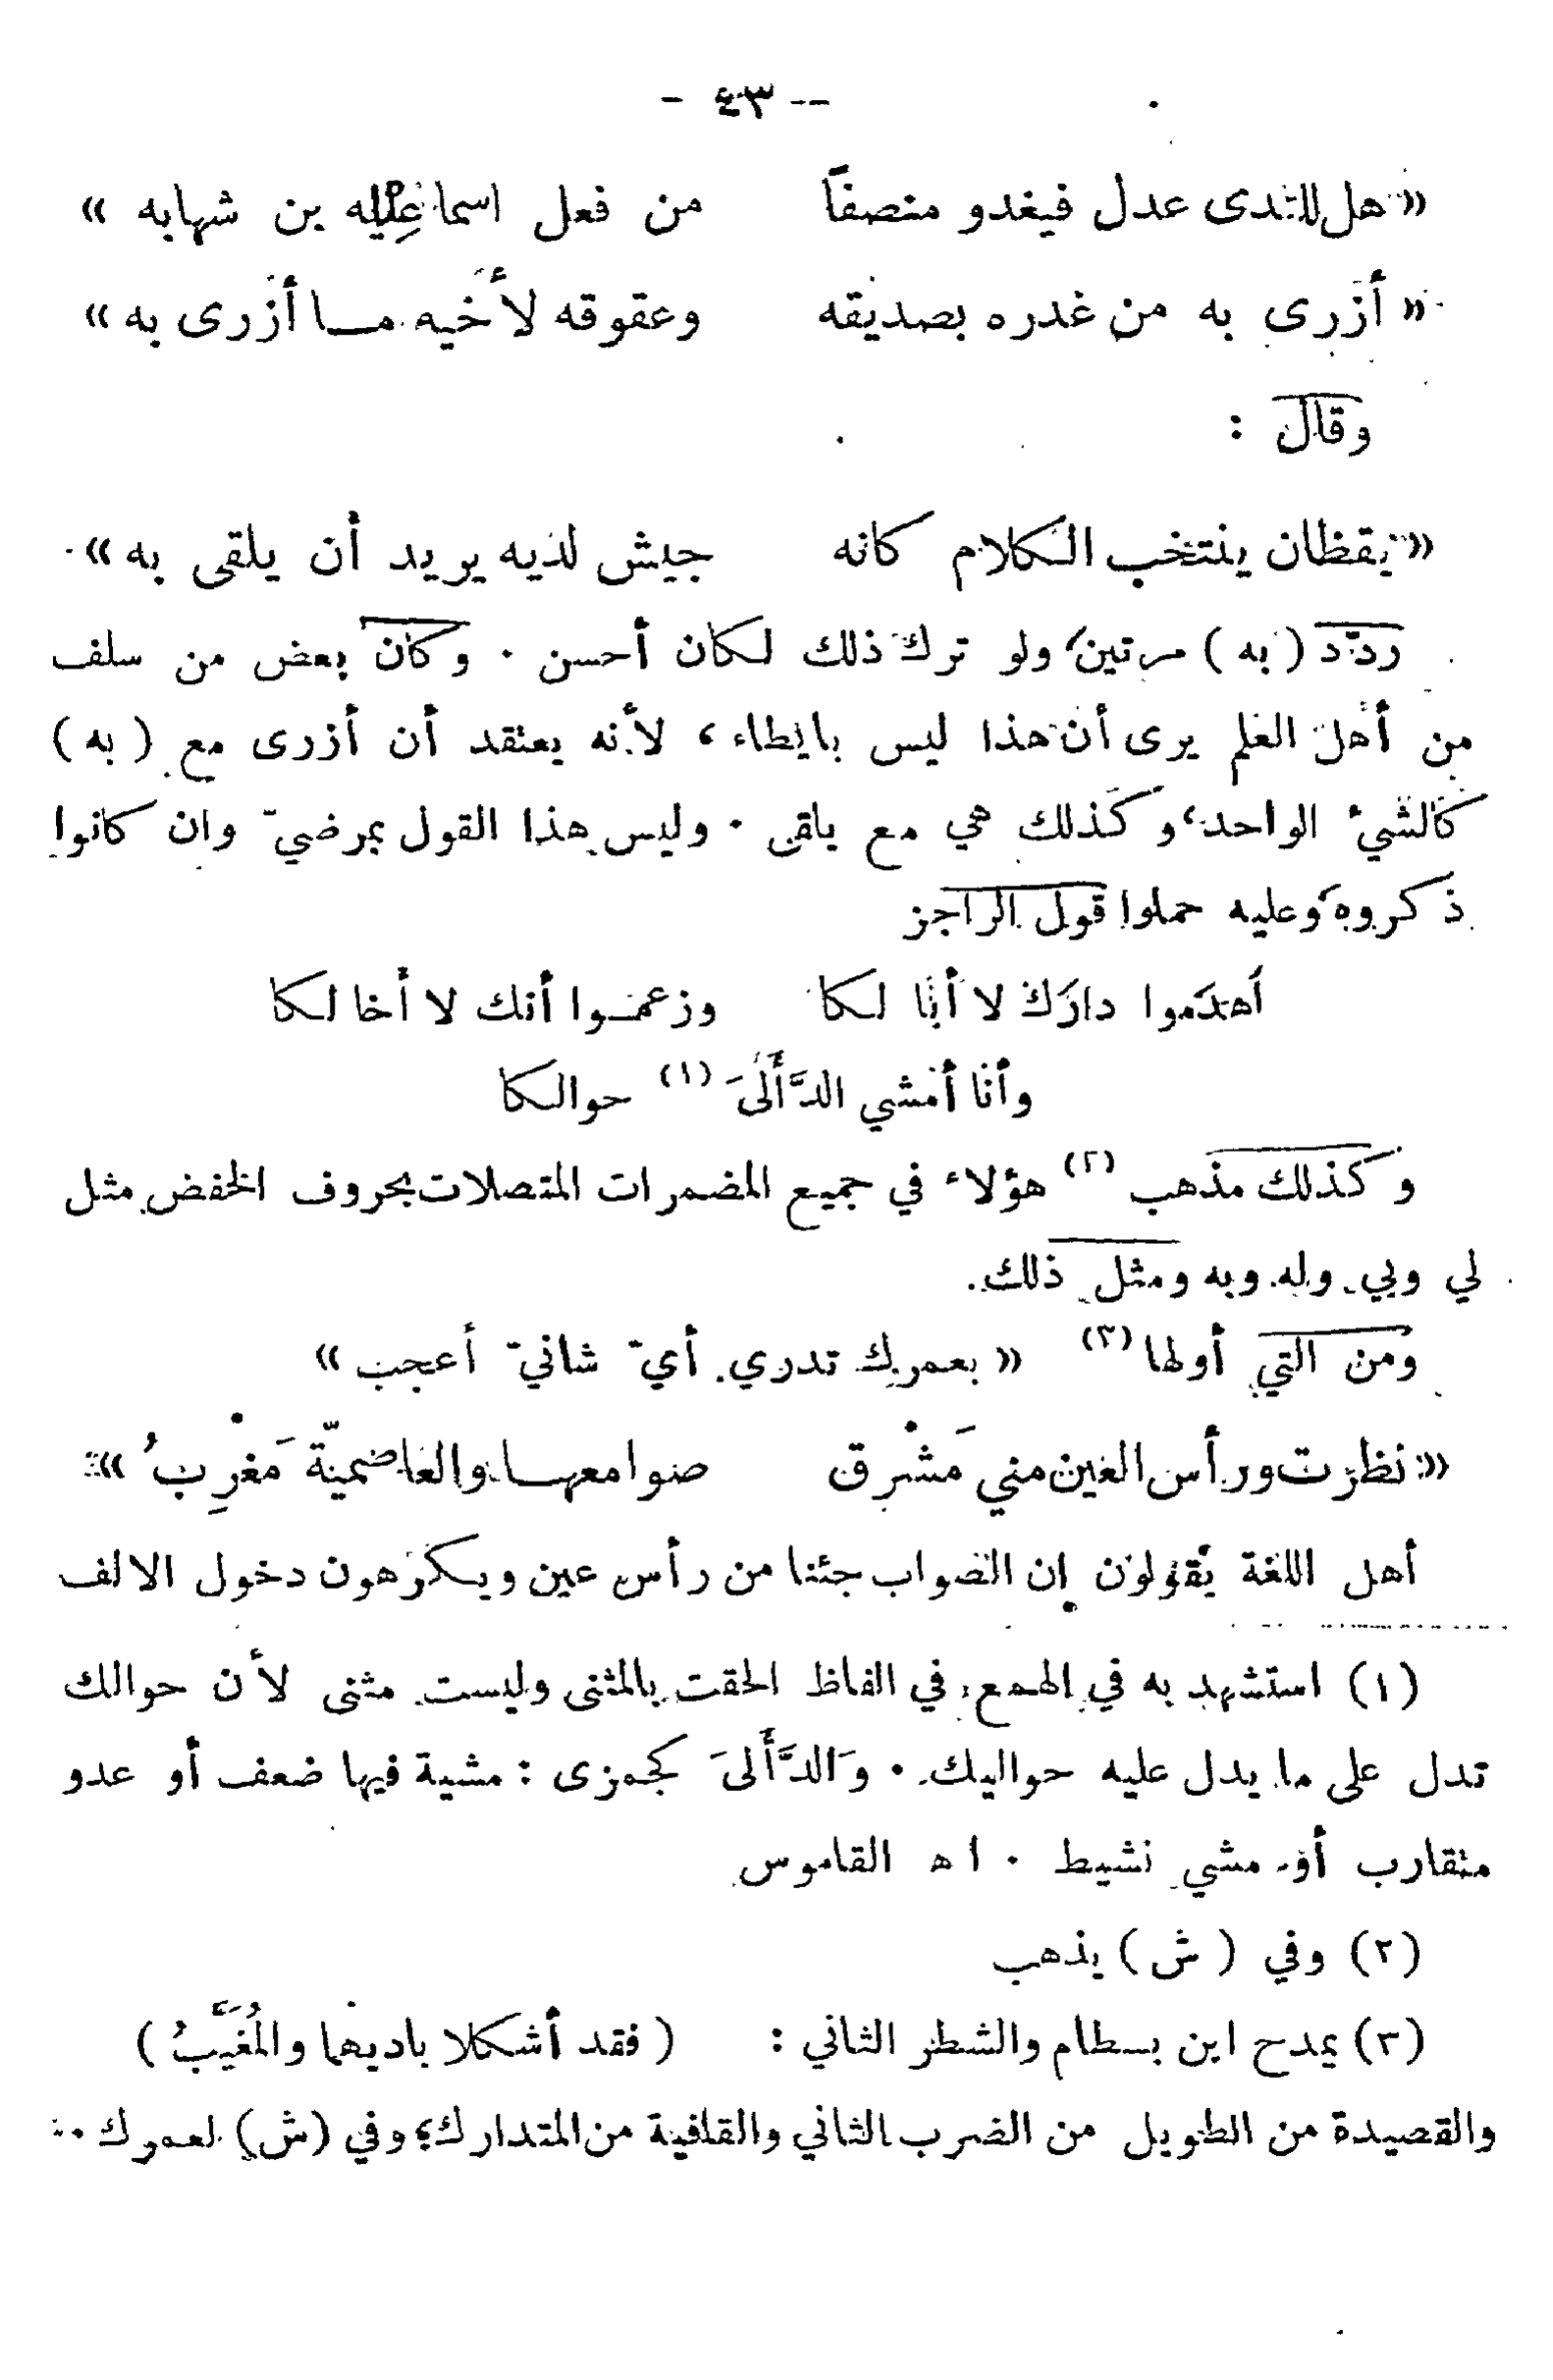 -- ٤٣ -
« هل للندى عدل فيغدو منصفاً من فعل اسماعِيله بن شهابه »
« أزرى به من غدره بصديقه وعقوقه لأخيه مـا أزرى به »
وقال :
« يقظان ينتخب الكلام كانه جيش لديه يريد أن يلقى به »
ردّد ( به ) مرتين، ولو ترك ذلك لكان أحسن . وكان بعض من سلف
من أهل العلم يرى أن هذا ليس بايطاء ، لأنه يعتقد أن أزرى مع ( به )
كالشيء الواحد، وكذلك هي مع يلقى . وليس هذا القول بمرضيّ وان كانوا
ذكروه، وعليه حملوا قول الراجز
أهدَموا دارَك لا أبا لكا وزعمـوا أنك لا أخا لكا
وأنا أمشي الدَّأَلَىَ (١) حوالكا
وكذلك مذهب (٢) هؤلاء في جميع المضمرات المتصلات بحروف الخفض مثل
لي وبي وله وبه ومثل ذلك.
ومن التي أولها (٣) « بعمرك تدري أيّ شانيّ أعجب »
« نظرت ورأس العين مني مَشْرق صوامعهـا والعاضميّة مَغْرِبُ »
أهل اللغة يقولون إن الصواب جئنا من رأس عين ويكرهون دخول الالف
(١) استشهد به في الهمع في الفاظ الحقت بالمثنى وليست مثنى لأن حوالك
تدل على ما يدل عليه حواليك . وَالدَّأَلىَ كجمزى : مشية فيها ضعف أو عدو
متقارب أو مشي نشيط . ا ه القاموس
(٢) وفي ( ش ) يذهب
(٣) يمدح ابن بسطام والشطر الثاني : ( فقد أشكلا باديهما والمُغَيَّبُ )
والقصيدة من الطويل من الضرب الثاني والقافية من المتدارك، وفي (ش) لعمرك .